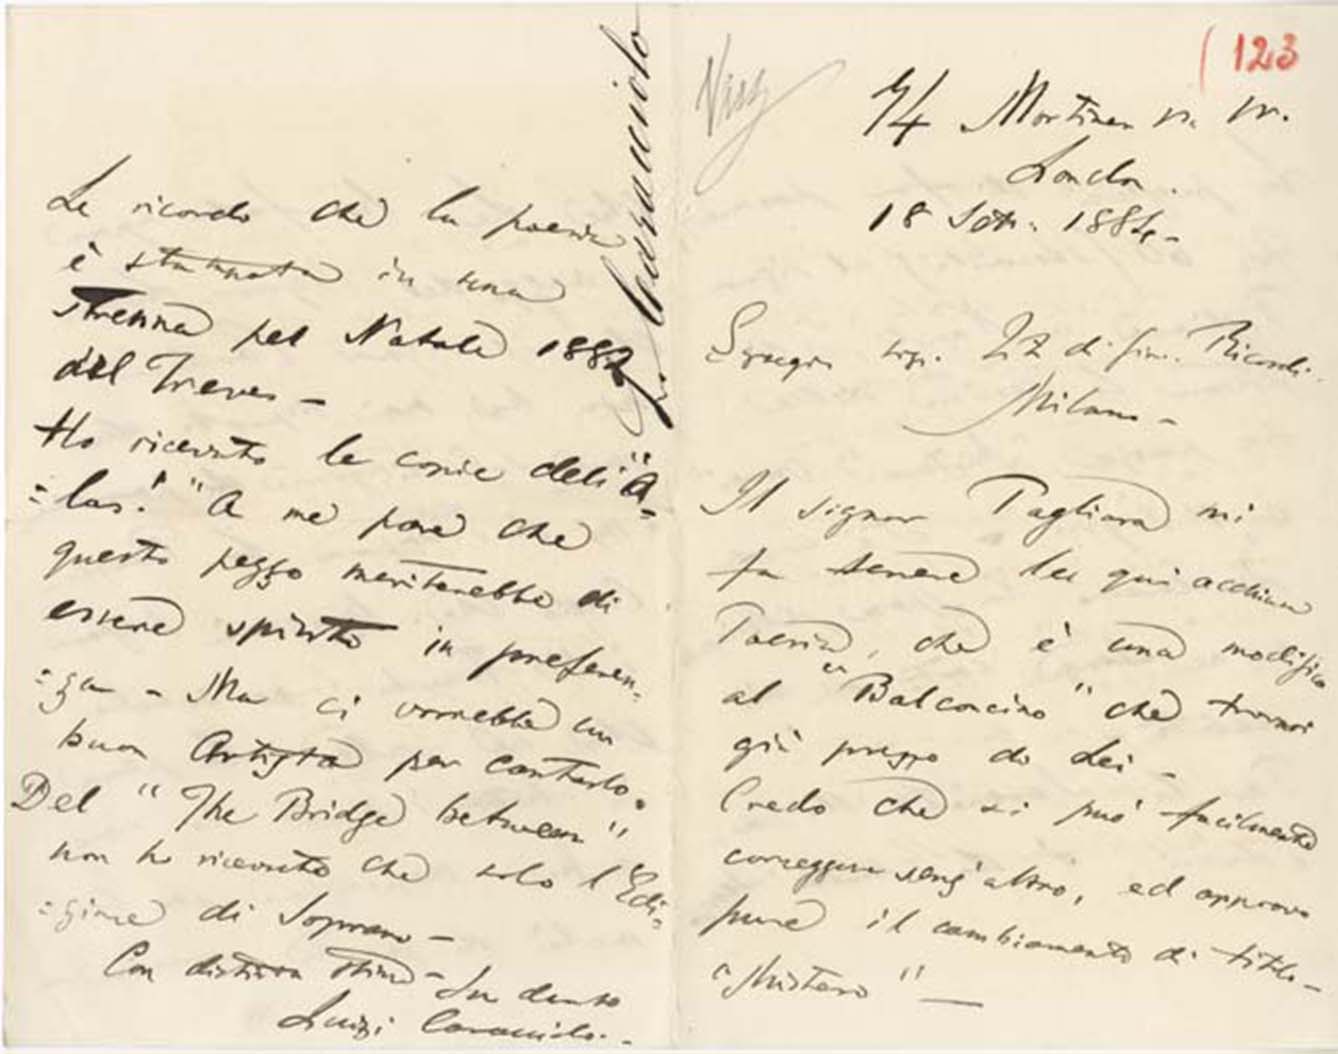 (123
Visto
74 Mortimer
London.
18 Sett. 1884 -
Egregi sigg. di Gio. Ricordi.
Milano -
Il signor Tagliara mi
fa tenere la qui acchiusa
Poesia, che è una modifica
al "Balconcino" che trovasi
già presso di Lei -
Credo che si può facilmente
correggere senz'altro, ed approvo
pure il cambiamento di titolo -
"Mistero" -
Le ricordo che la poesia
è stampata in una
Strenna pel Natale 1882
del Treves -
Ho ricevuto le copie dell' "A
=las!" A me pare che
questo pezzo meriterebbe di
essere spinto in preferen-
=za - Ma ci vorrebbe un
buon Artista per cantarlo.
Del "The Bridge between"
non ho ricevuto che solo l'Edi-
=zione di Soprano -
Con distinta stima -
Luigi Caracciolo. -
Caracciolo